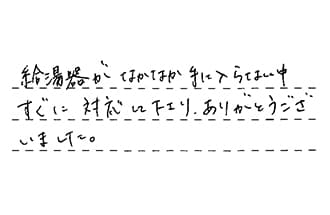 給湯器がなかなか手に入らない中
すぐに対応して下さり、ありがとうござ
いました。